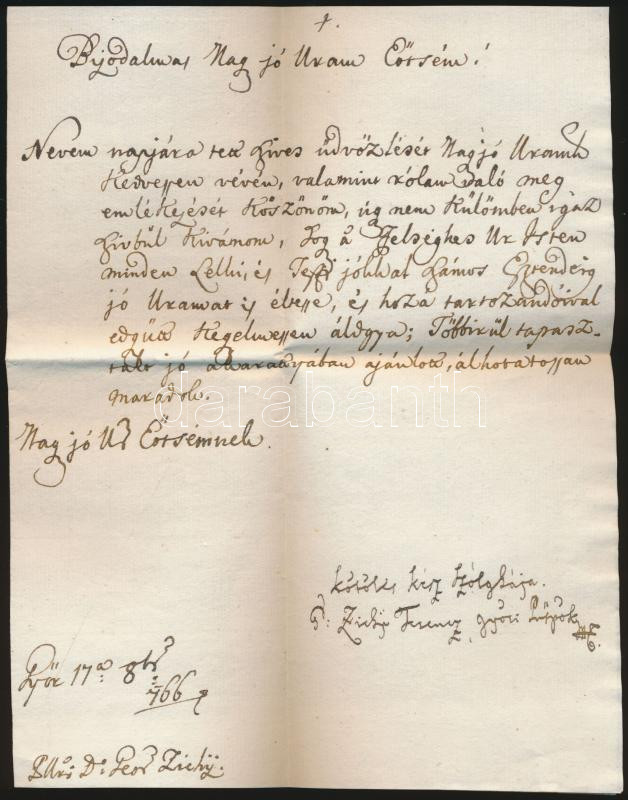 +.
Bizodalmas Nagy jó Uram Eőtsém!
Nevem napjára tett szíves üdvözlését Nagy jó Uramnk
Kedvessen vévén, valamint rólam való meg
emlékezését Köszönöm, úgy nem Külömben igaz
szivbűl Kivánom, hogy a Felséghes Ur Isten
minden Lelki, és Testi jókkal számos Esztendeig
jó Uramat is éltesse, és hozzá tartozandóival
edgyütt Kegelmessen áldgya; Többirűl tapasz-
talt jó akarattyában ajánlott, álhatatossan
maradok.
Nagy jó Ur Eőtsémnek.
kőtőles kész szolghája.
G: Zichy Ferencz győri Püspök
Győr 17a 8br
766
Illmo D: Geor Zichÿ.
darabanth